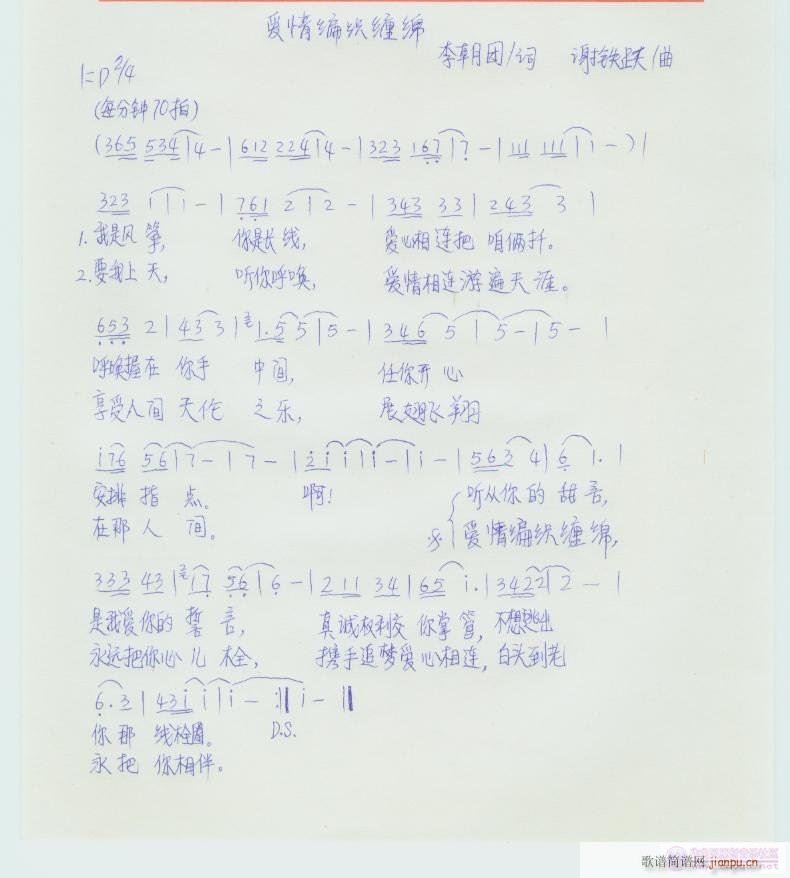 爱情编织缠绵
李朝团/词 谢铁跌/曲
1=D 2/4
(每分钟70拍)
(365 534|4-|612 224|4-|323 167|7-|111 111|i-)|
323 i|i-|761 2|2-|343 33|243 3|
1.我是风筝, 你是长线, 爱心相连把 咱俩扦。
2.要我上天, 听你呼唤, 爱情相连游遍天涯。
653 2|43 3|1.5 5|5-|346 5|5-|5-|
呼唤握在 你手 中间, 任你开心
享受人间 天伦 之乐, 展翅飞翔
i76 56|7-|7-|2i i|i-|i-|563 4|6 1.|
安排 指 点。 啊! 听从你的 甜言,
在那 人 间。 爱情编织缠绵,
333 43|17 56|6-|211 34|65 i.|3422|2-|
是我爱你的 誓言, 真诚权利交 你掌管, 不想逃出
永远把你心儿 栓, 携手追梦爱心相连, 白头到老
6.3|43i i|i-:‖i-‖
你那 线栓圈。 D.S.
永把 你相伴。
歌谱简谱网 jianpu.cn